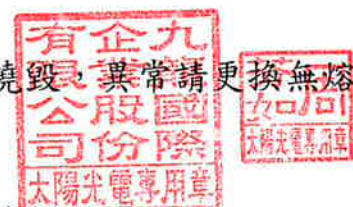 燒毀，異常請更換無熔
九國際
企業股份
有限公司
太陽光電專用章
太陽光電專用章